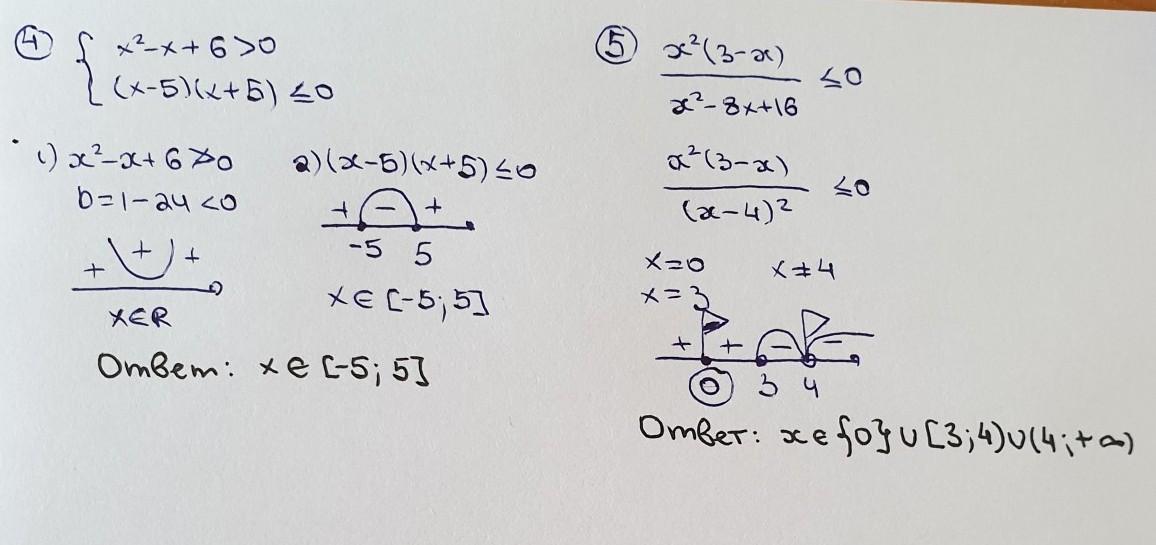 ④ { x²-x+6>0
(x-5)(x+5)≤0
1) x²-x+6>0
D=1-24<0
+ + +
x∈R
2) (x-5)(x+5)≤0
+ - +
-5 5
x∈[-5;5]
Ответ: x∈[-5;5]
⑤ x²(3-x) / x²-8x+16 ≤0
x²(3-x) / (x-4)² ≤0
x=0 x≠4
x=3
+ + - -
0 3 4
Ответ: x∈{0}∪[3;4)∪(4;+∞)